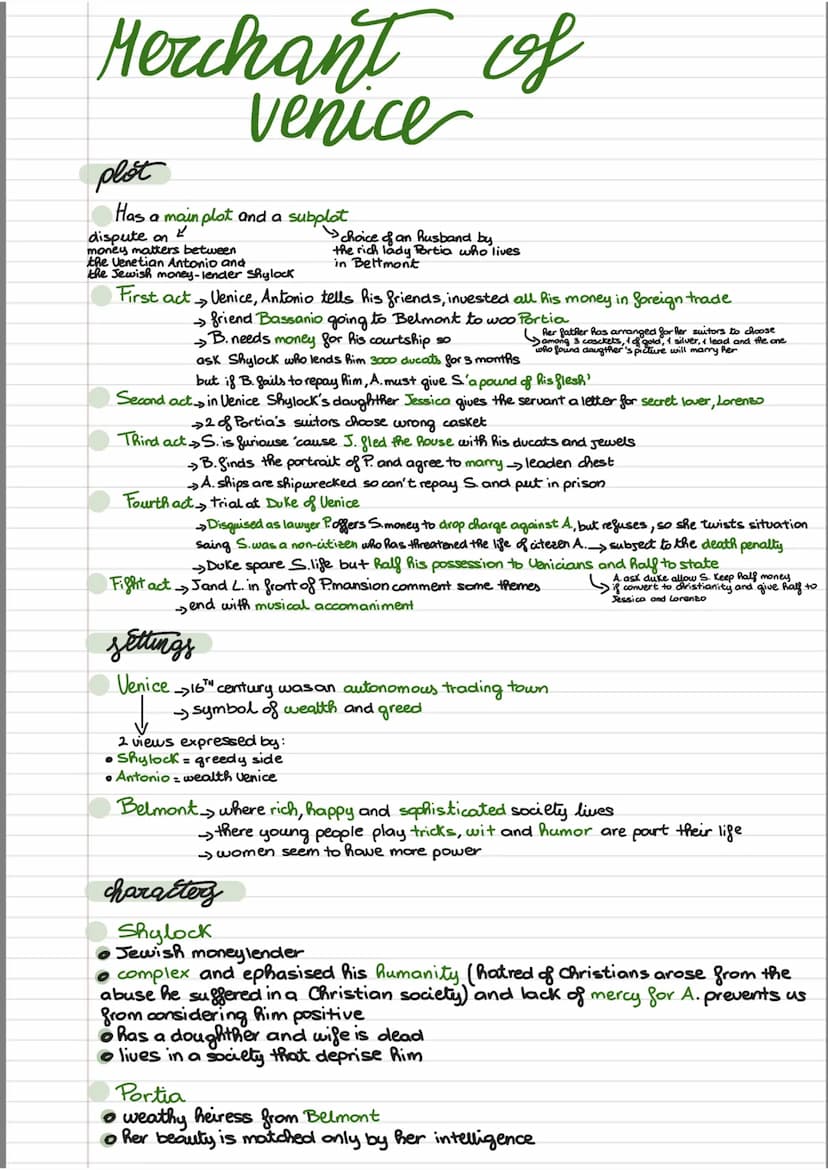 Merchant of
venice
plot
Has a main plot and a subplot
dispute on
money matters between
the Venetian Antonio and
the Jewish money-lender Shylock
choice of an husband by
the rich lady Portia who lives
in Beltmont
First act → Venice, Antonio tells his friends, invested all his money in foreign trade
→ friend Bassanio going to Belmont to woo Portia
→ B. needs money for his courtship so
ask Shylock who lends him 3000 ducats for 3 months
but if B. fails to repay him, A. must give S. 'a pound of his flesh'
her father has arranged for her suitors to choose
among 3 casckets, 1 of gold, 1 silver, 1 lead and the one
who found daugther's picture will marry her
Second act → in Venice Shylock's daughther Jessica gives the servant a letter for secret lover, Lorenzo
→ 2 of Portia's suitors choose wrong casket
Third act → S. is furiouse 'cause J. fled the house with his ducats and jewels
→ B. finds the portrait of P. and agree to marry → leaden chest
→ A. ships are shipwrecked so can't repay S. and put in prison
Fourth act → trial at Duke of Venice
→ Disguised as lawyer P. offers S. money to drop charge against A, but refuses, so she twists situation
saing S. was a non-citizen who has threatened the life of citezen A. → subject to the death penalty
→ Duke spare S. life but half his possession to Venicians and half to state
A. ask duke allow S. keep half money
if convert to christianity and give half to
Jessica and Lorenzo
Fight act → J and L. in front of P. mansion comment some themes
→ end with musical accomaniment
settings
Venice → 16TH century was an autonomous trading town
→ symbol of wealth and greed
2 views expressed by:
• Shylock = greedy side
• Antonio = wealth Venice
Belmont → where rich, happy and sophisticated society lives
→ there young people play tricks, wit and humor are part their life
→ women seem to have more power
characters
Shylock
• Jewish moneylender
• complex and ephasised his humanity (hatred of Christians arose from the
abuse he suffered in a Christian society) and lack of mercy for A. prevents us
from considering him positive
• has a doughther and wife is dead
• lives in a society that deprise him
Portia
• weathy heiress from Belmont
• her beauty is matched only by her intelligence